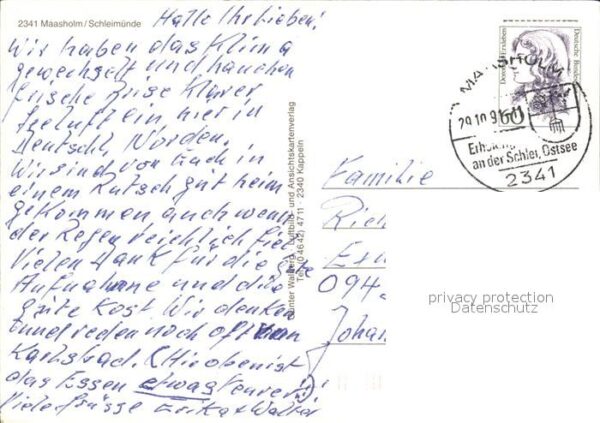 2341 Maasholm/Schleimünde
Hallo Ihr Lieben!
Wir haben das Klima
gewechselt und tauchen
frische Brise klarer
Seeluft ein hier in
Deutschl. Norden.
Wir sind von Euch in
einem Rutsch gut heim
gekommen auch wenn
der Regen reichlich fiel
Vielen Dank für die gute
Aufnahme und die
gute Kost. Wir denken
und reden noch oft von
Karlsbad. (Hier oben ist
das Essen etwas teurer!)
Viele Grüsse Erika + Walter
Günter Walberg, Luftbild- und Ansichtskartenverlag
Tel. (04642) 4711 - 2340 Kappeln
Deutsche Bundes
60
MAASHOLM
29.10.91
an der Schlei, Ostsee
2341
Familie
094
Johan
privacy protection
Datenschutz